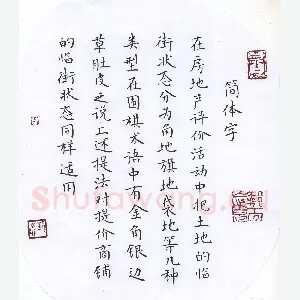 简体字
在房地产评价活动中把土地的临
街状态分为角地旗地袋地等几种
类型在围棋术语中有金角银边
草肚皮之说上述提法对提价商铺
的临街状态同样适用